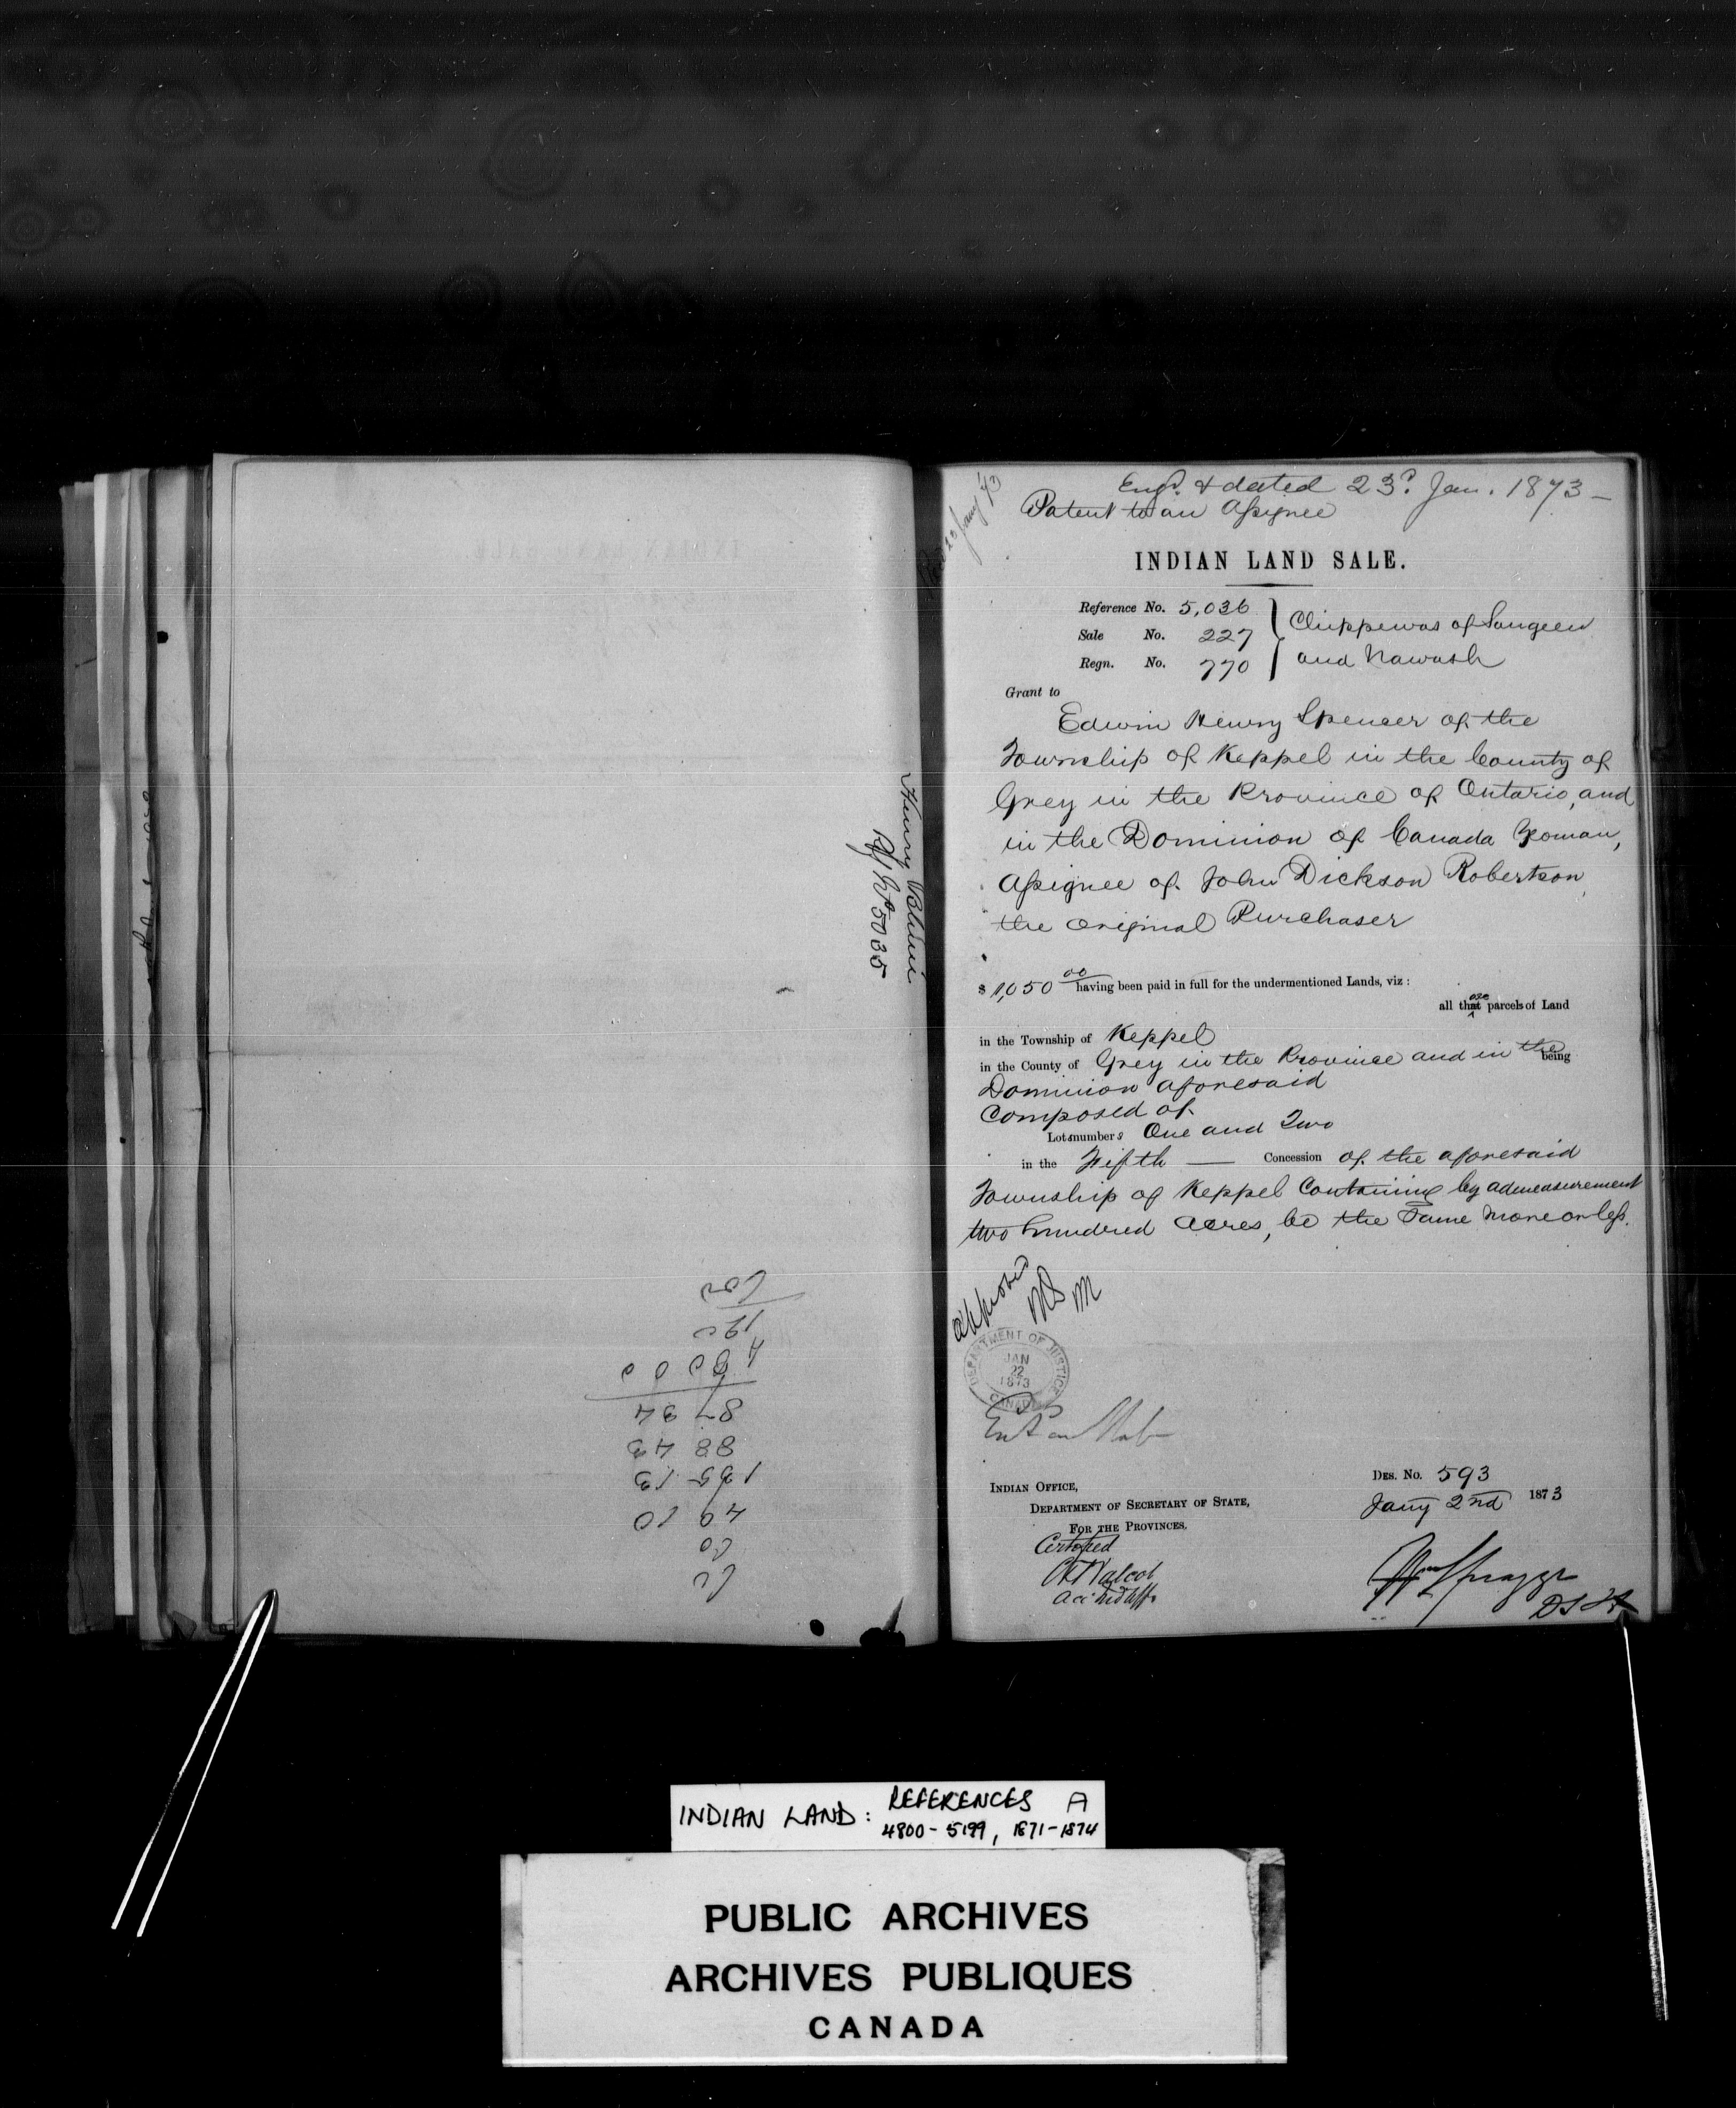 Henry
Ref No 5035
Engd. & dated 23d. Jan. 1873 –
Patent to an Assignee
INDIAN LAND SALE.
Reference No. 5,036
Sale No. 227
Regn. No. 770
Chippewas of Saugeen
and Nawash
Grant to
Edwin Henry Spencer of the
Township of Keppel in the County of
Grey in the Province of Ontario, and
in the Dominion of Canada Yeoman,
Assignee of John Dickson Robertson
the original Purchaser
$ 1,050 00 having been paid in full for the undermentioned Lands, viz :
all those parcels of Land
in the Township of Keppel
in the County of Grey in the Province and in the being
Dominion aforesaid
Composed of
Lots numbers One and Two
in the Fifth — Concession of the aforesaid
Township of Keppel Containing by admeasurement
two hundred acres, be the Same more or less.
approved
DEPARTMENT OF JUSTICE
JAN
22
1873
CANADA
DES. No. 593
INDIAN OFFICE,
Jany 2nd 1873
DEPARTMENT OF SECRETARY OF STATE,
FOR THE PROVINCES.
Certified
INDIAN LAND: REFERENCES A
4800-5199, 1871-1874
PUBLIC ARCHIVES
ARCHIVES PUBLIQUES
CANADA